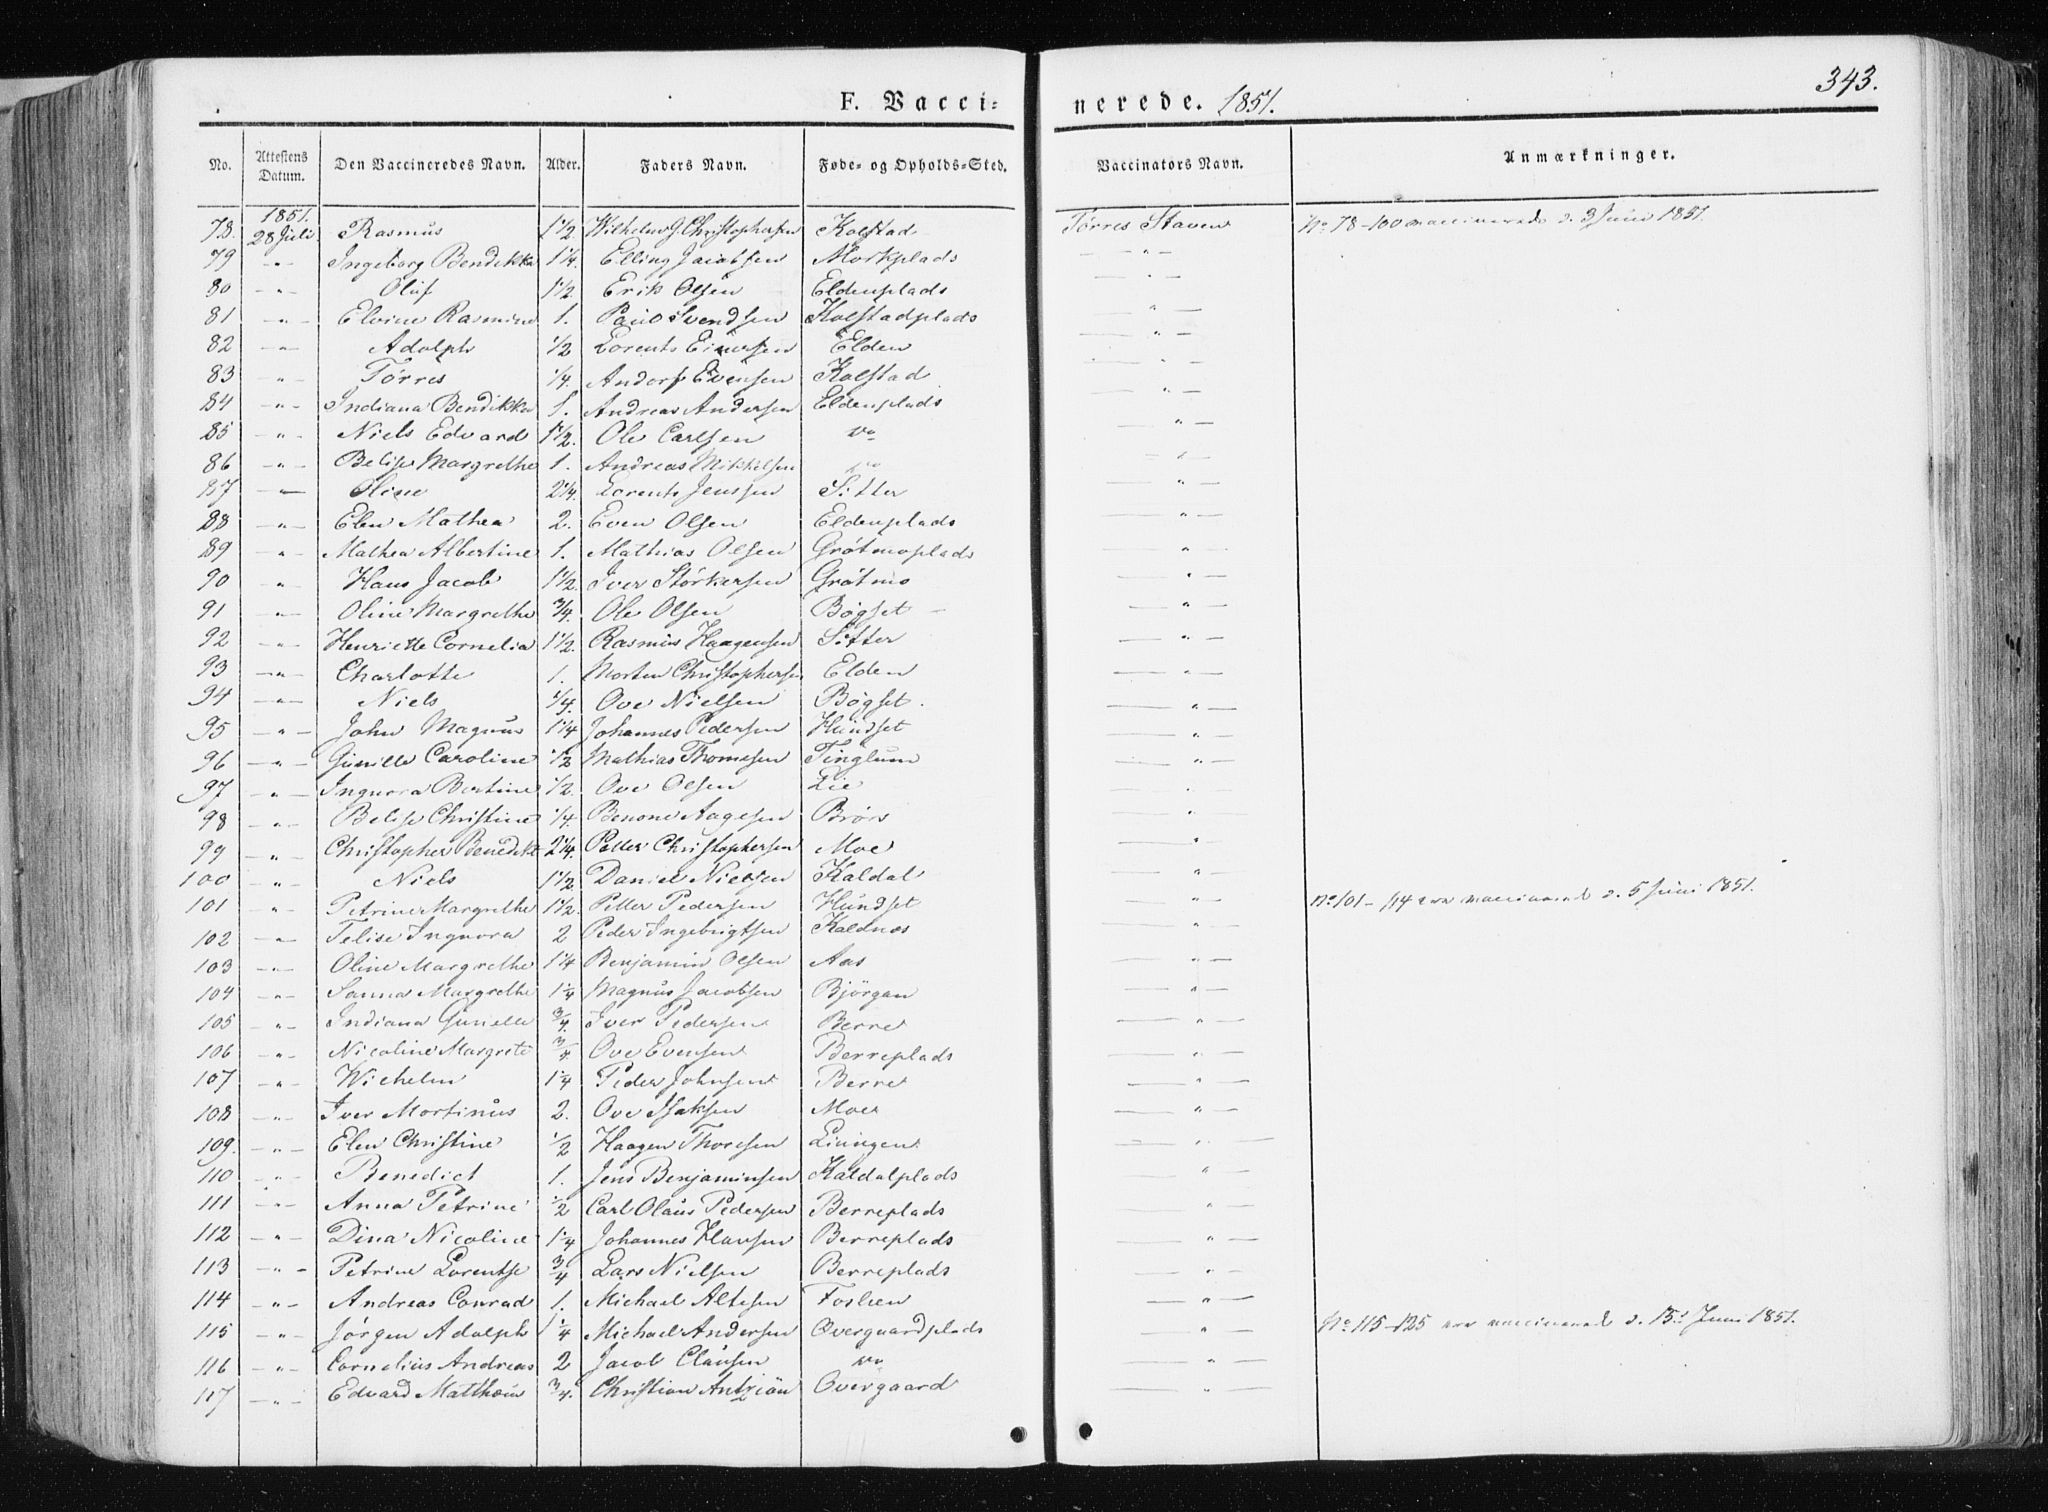 343.
F. Vaccinerede. 1851.
No. Attestens Datum. Den Vaccineredes Navn. Alder. Faders Navn. Føde- og Opholds-Sted. Vaccinators Navn. Anmærkninger.
1851.
78. 28 Juli Rasmus 1 1/2 Wilhelm G Christophersen Kolstad Tørres Staven No 78-100 vaccinerede d. 3 Juni 1851.
79 -"- Ingeborg Bendikka 1 1/4. Elling Jacobsen Morkplads -"-
80 -"- Oluf 1 1/2 Erik Olsen Eldenplads -"-
81 -"- Elvine Rasmine 1. Paul Svendsen Kolstadplads -"-
82 -"- Adolph 1/2 Lorents Einersen Elden -"-
83 -"- Tørres 1/4. Andors Evensen Kolstad -"-
84 -"- Indiana Bendikka 1. Andreas Andersen Eldenplads -"-
85 -"- Niels Edvard 1 1/2. Ole Carlsen do -"-
86 -"- Belise Margrethe 1. Andreas Mikkelsen do -"-
87 -"- Oline 2 1/4. Lorents Jenssen Sitter -"-
88 -"- Elen Mathea 2. Even Olsen Eldenplads -"-
89 -"- Mathea Albertine 1. Mathias Olsen Grøtmoplads -"-
90 -"- Hans Jacob 1 1/2. Iver Størkersen Grøtmo -"-
91 -"- Oline Margrethe 3/4. Ole Olsen Bøgset -"-
92 -"- Henriette Cornelia 1 1/2. Rasmus Haagensen Sitter -"-
93 -"- Charlotte 1. Morten Christophersen Elden -"-
94 -"- Niels 1/4. Ove Nielsen Bøgset. -"-
95 -"- John Magnus 1 1/4 Johannes Pedersen Hundset -"-
96 -"- Gunille Caroline 1/2 Mathias Thomesen Tinglum -"-
97 -"- Ingvora Bertine 1/2. Ove Olsen Lie -"-
98 -"- Belise Christine 1/4. Benone Aagesen Brørs -"-
99 -"- Christopher Benedikt 2 1/4. Petter Christophersen Moe -"-
100 -"- Niels 1 1/2 Daniel Nielsen Kaldal -"-
101 -"- Petrine Margrethe 1 1/2. Petter Pedersen Hundset -"- No 101-114 ere vaccinered d. 5 Juni 1851.
102 -"- Telise Ingvora 2 Peder Ingebrigtsen Kaldnæs -"-
103 -"- Oline Margrethe 1 1/4 Benjamin Olsen Aas -"-
104 -"- Sanna Margrethe 1 1/4 Magnus Jacobsen Bjørgan -"-
105 -"- Indiana Gunelle 3/4. Iver Pedersen Berre -"-
106 -"- Nicoline Margrete 3/4. Ove Evensen Berreplads -"-
107 -"- Wichelm 1 1/4 Peder Johnsen Berre -"-
108 -"- Iver Mortinus 2. Ove Isaksen Moe -"-
109. -"- Elen Christine 1/2 Haagen Thoresen Liungen -"-
110 -"- Benedict 1. Jens Benjaminsen Kaldalplads -"-
111 -"- Anna Petrine 1/2 Carl Olaus Pedersen Berreplads -"-
112 -"- Dina Nicoline 1 1/4 Johannes Hansen Berreplads -"-
113 -"- Petrine Lorentse 3/4 Lars Nielsen Berreplads -"-
114 -"- Andreas Conrad 1. Michael Altesen Foslien -"-
115 -"- Jørgen Adolph 1 1/4 Michael Andersen Overgaardplads -"- No 115-125 ere vaccinered d. 13d Juni 1851.
116 -"- Cornelius Andreas 2 Jacob Clausen do -"-
117 -"- Edvard Matthæus 3/4. Christian Antzion Overgaard -"-